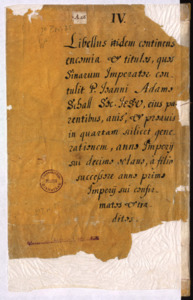 IV.
Libellus itidem continens
encomia & titulos, quos
Sinarum Imperator con
tulit P. Joanni Adamo
Schall Soc. JESV, eius pa
rentibus, avis, & proavis
in quartam scilicet gene
rationem, anno Imperij
sui decimo octavo, a filio
successore anno primo
Imperij sui confir
matos & edi
ditos.